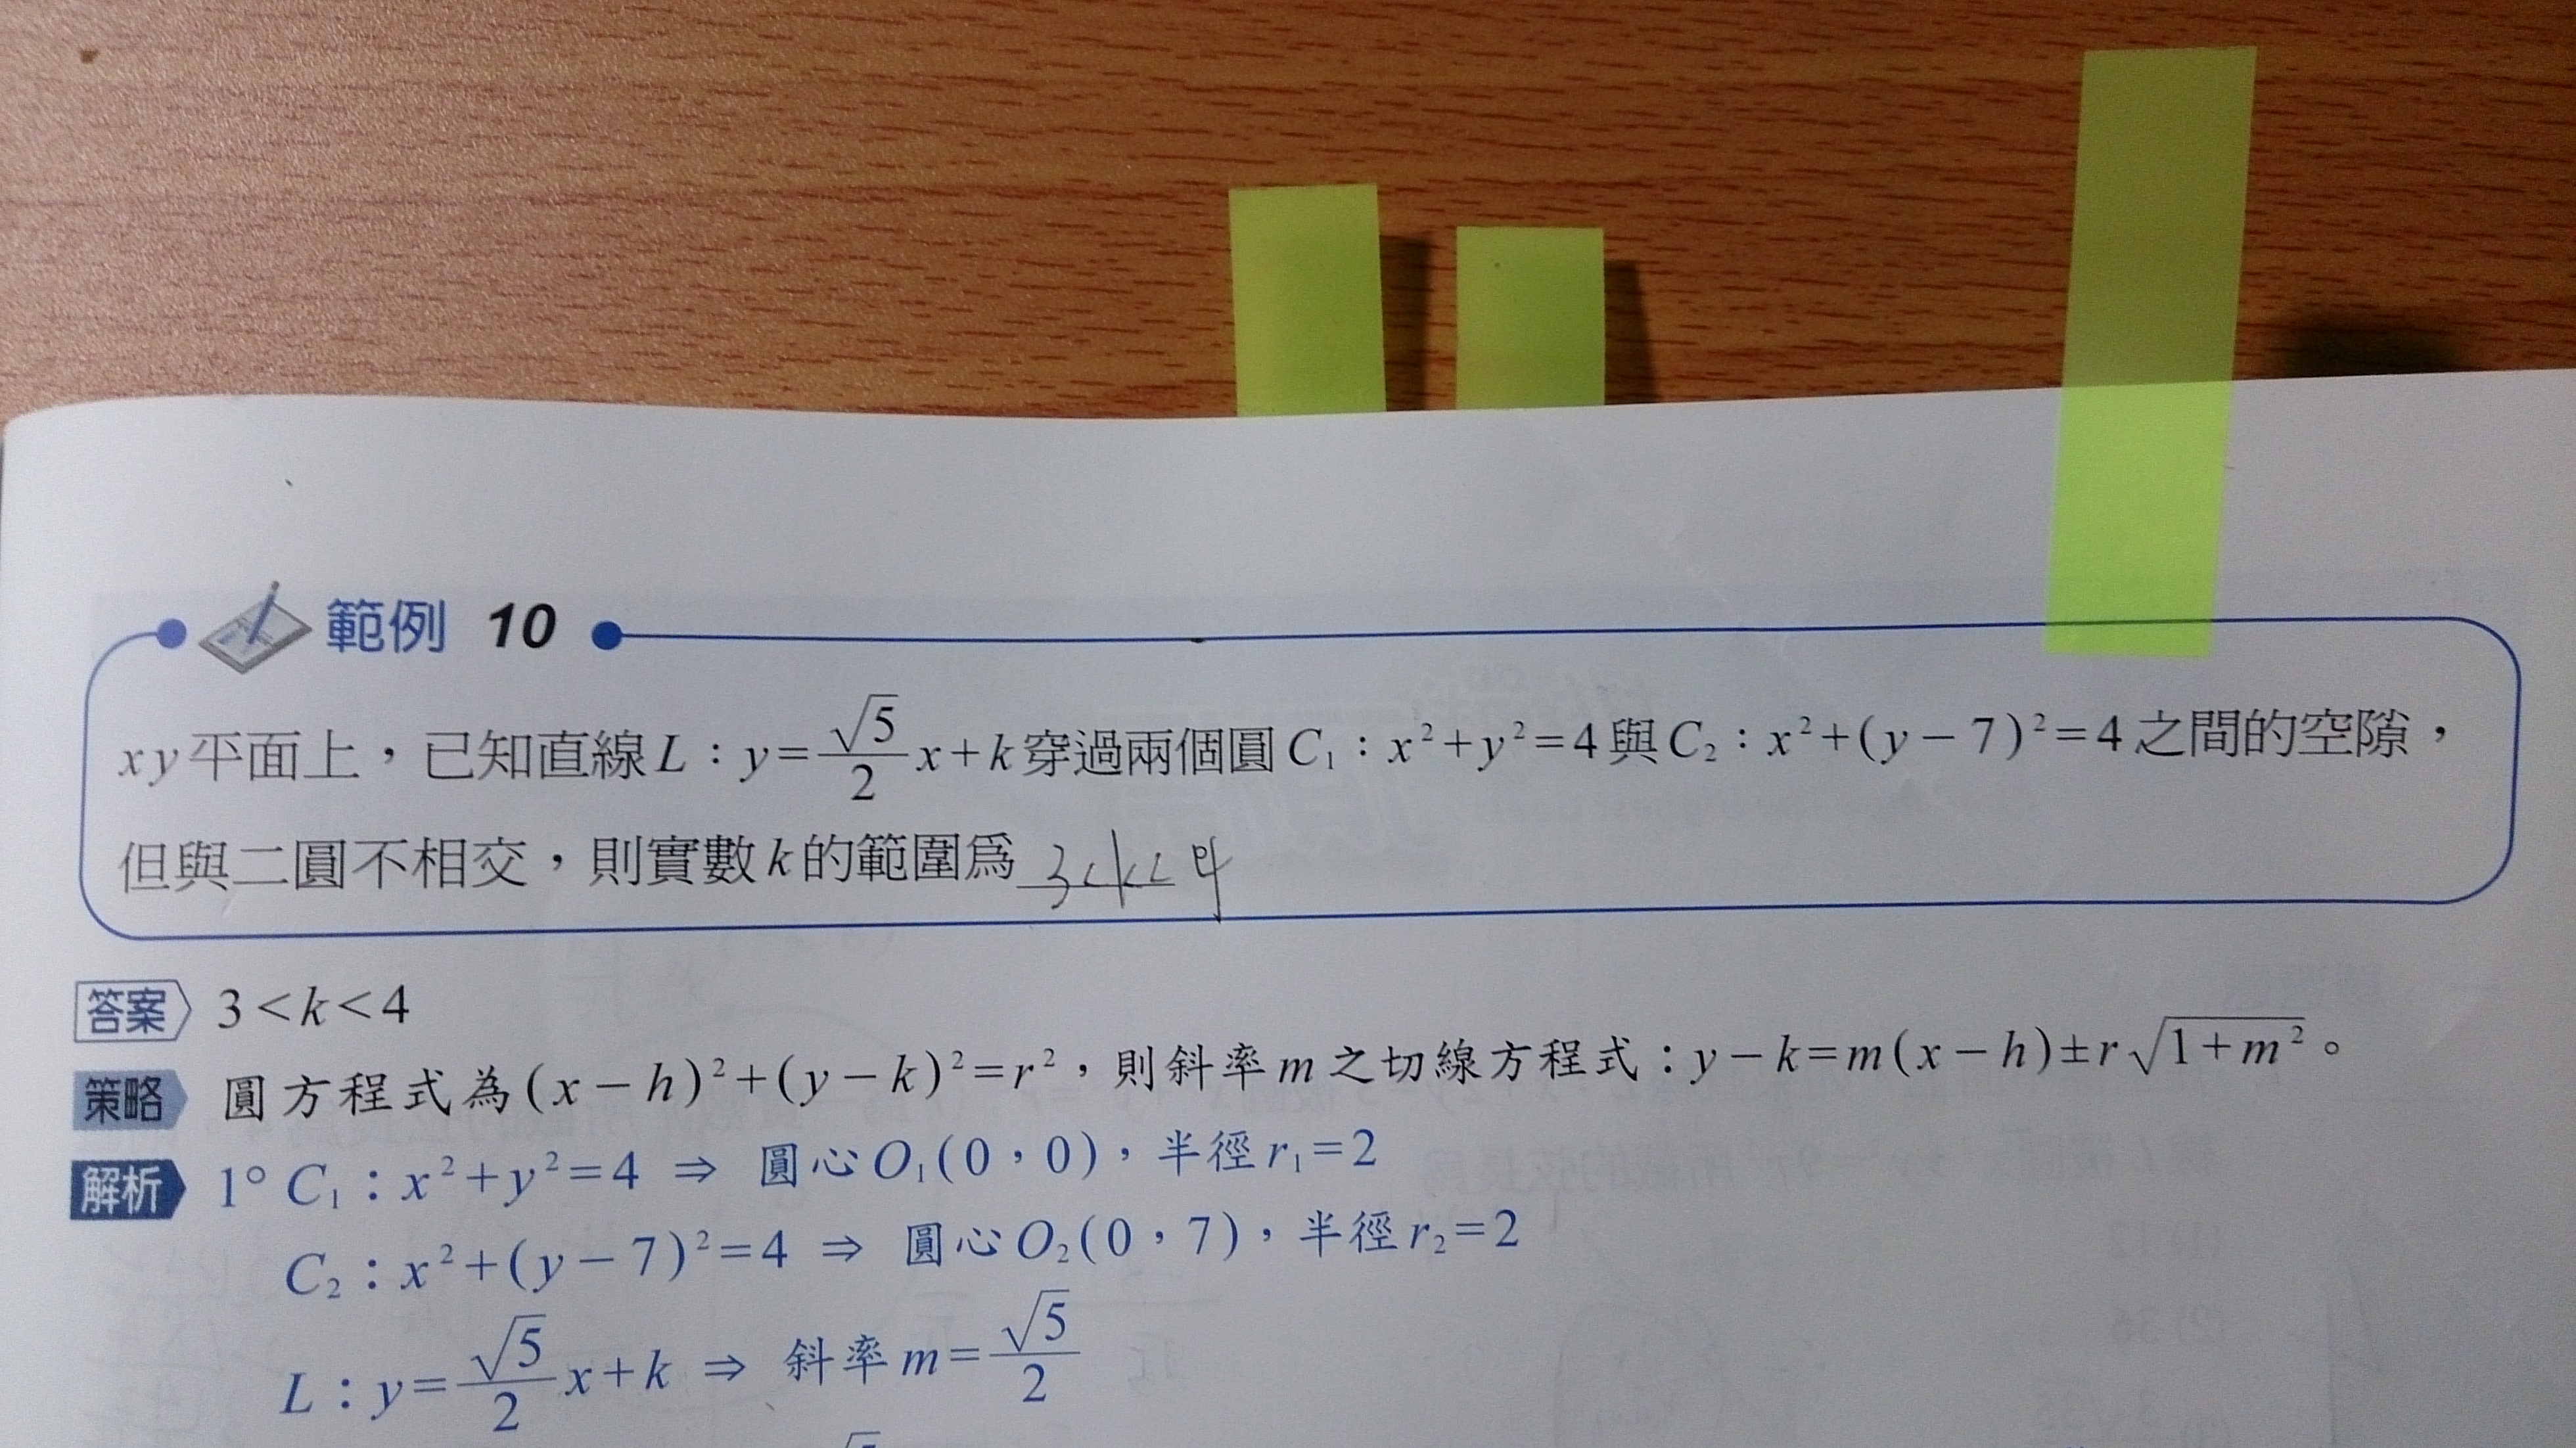 範例 10
xy平面上，已知直線L：y=√5/2 x+k穿過兩個圓C₁：x²+y²=4與C₂：x²+(y-7)²=4之間的空隙，
但與二圓不相交，則實數k的範圍爲 3<k<4
答案 3<k<4
策略 圓方程式為(x-h)²+(y-k)²=r²，則斜率m之切線方程式：y-k=m(x-h)±r√(1+m²)。
解析 1° C₁：x²+y²=4 ⇒ 圓心O₁(0，0)，半徑r₁=2
C₂：x²+(y-7)²=4 ⇒ 圓心O₂(0，7)，半徑r₂=2
L：y=√5/2 x+k ⇒ 斜率m=√5/2